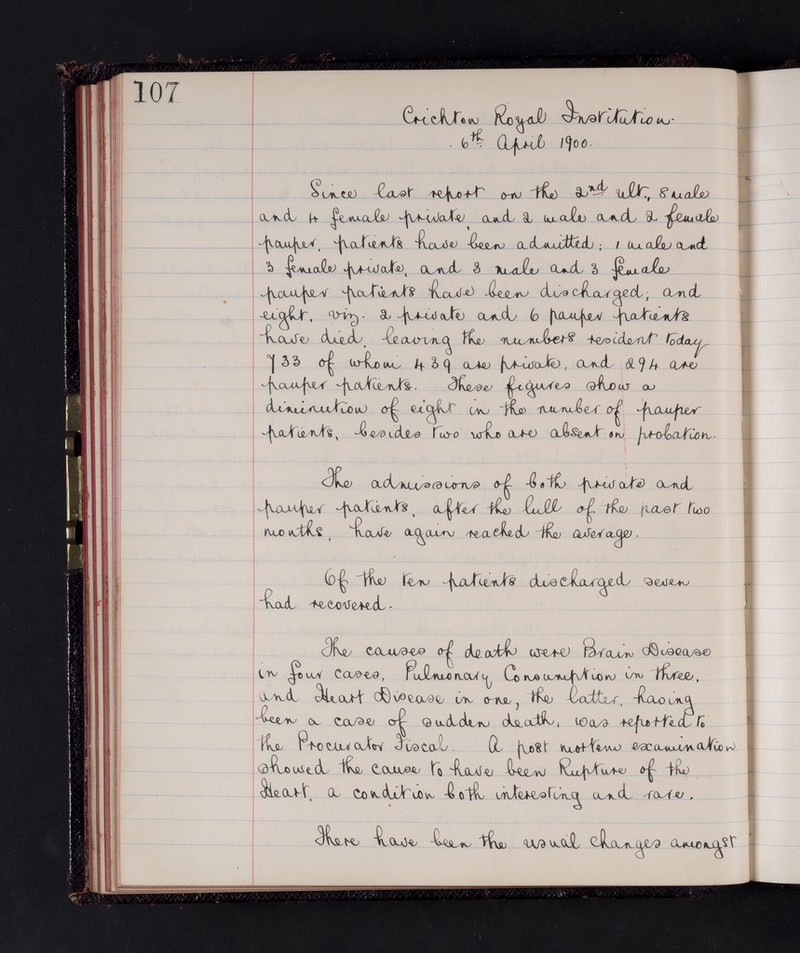 107
Crichton Royal Institution.
6th April 1900.
Since last report on the 2nd ult., 8 male
and 4 female private, and 2 male and 2 female
pauper, patients have been admitted; 1 male and
3 female private, and 3 male and 3 female
pauper patients have been discharged; and
eight, viz. 2 private and 6 pauper patients
have died, leaving the numbers resident today
733 of whom 439 are private, and 294 are
pauper patients. These figures show a
diminution of eight in the number of pauper
patients, besides two who are absent on probation.
The admissions of both private and
pauper patients, after the lull of the past two
months, have again reached the average.
Of the ten patients discharged seven
had recovered.
The causes of death were Brain Disease
in four cases, Pulmonary Consumption in three,
and Heart Disease in one, the latter, having
been a case of sudden death, was reported to
the Procurator Fiscal. A post mortem examination
showed the cause to have been Rupture of the
Heart, a condition both interesting and rare.
There have been the usual changes amongst